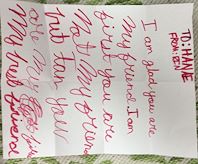 TO: HANIE
FROM: BEN
I am glad you are
My friend. I am
first you are
Not My friend
but your
are My
My best friend